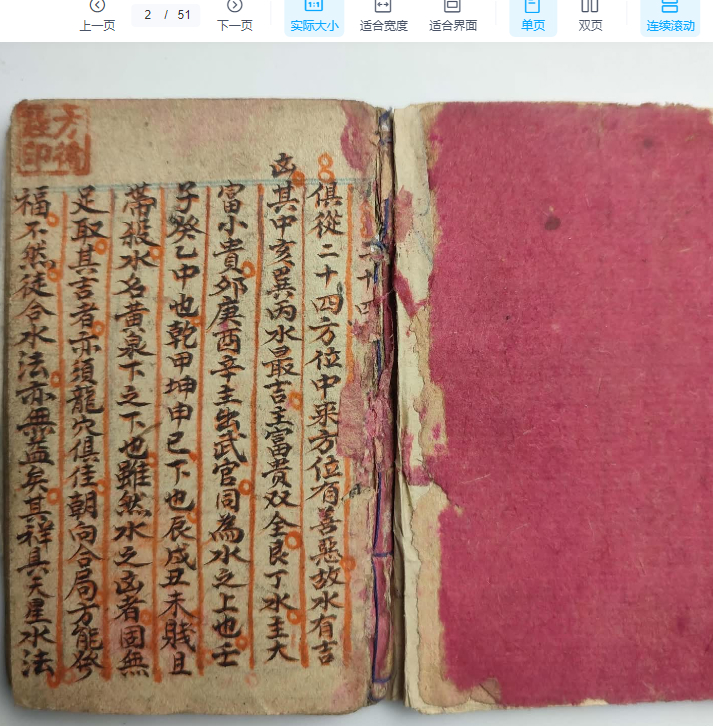 上一页
2 / 51
下一页
实际大小
适合宽度
适合界面
单页
双页
连续滚动
二十四
俱從二十四方位中來方位有善惡故水有吉
凶其中亥巽丙水最吉主富貴双全艮丁水主大
富小貴卯庚酉辛主出武官同為水之上也壬
子癸乙中也乾甲坤申巳下也辰戌丑未賤且
帶殺水名黄泉下之下也雖然水之凶者固無
足取其吉者亦須龍穴俱佳朝向合局方能發
福不然徒合水法亦無益矣其詳具天星水法